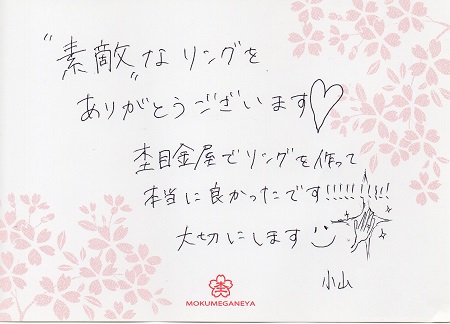 "素敵"なリングを
ありがとうございます♡
杢目金屋でリングを作って
本当に良かったです!!!!!!!!!!
大切にします
小山
MOKUMEGANEYA